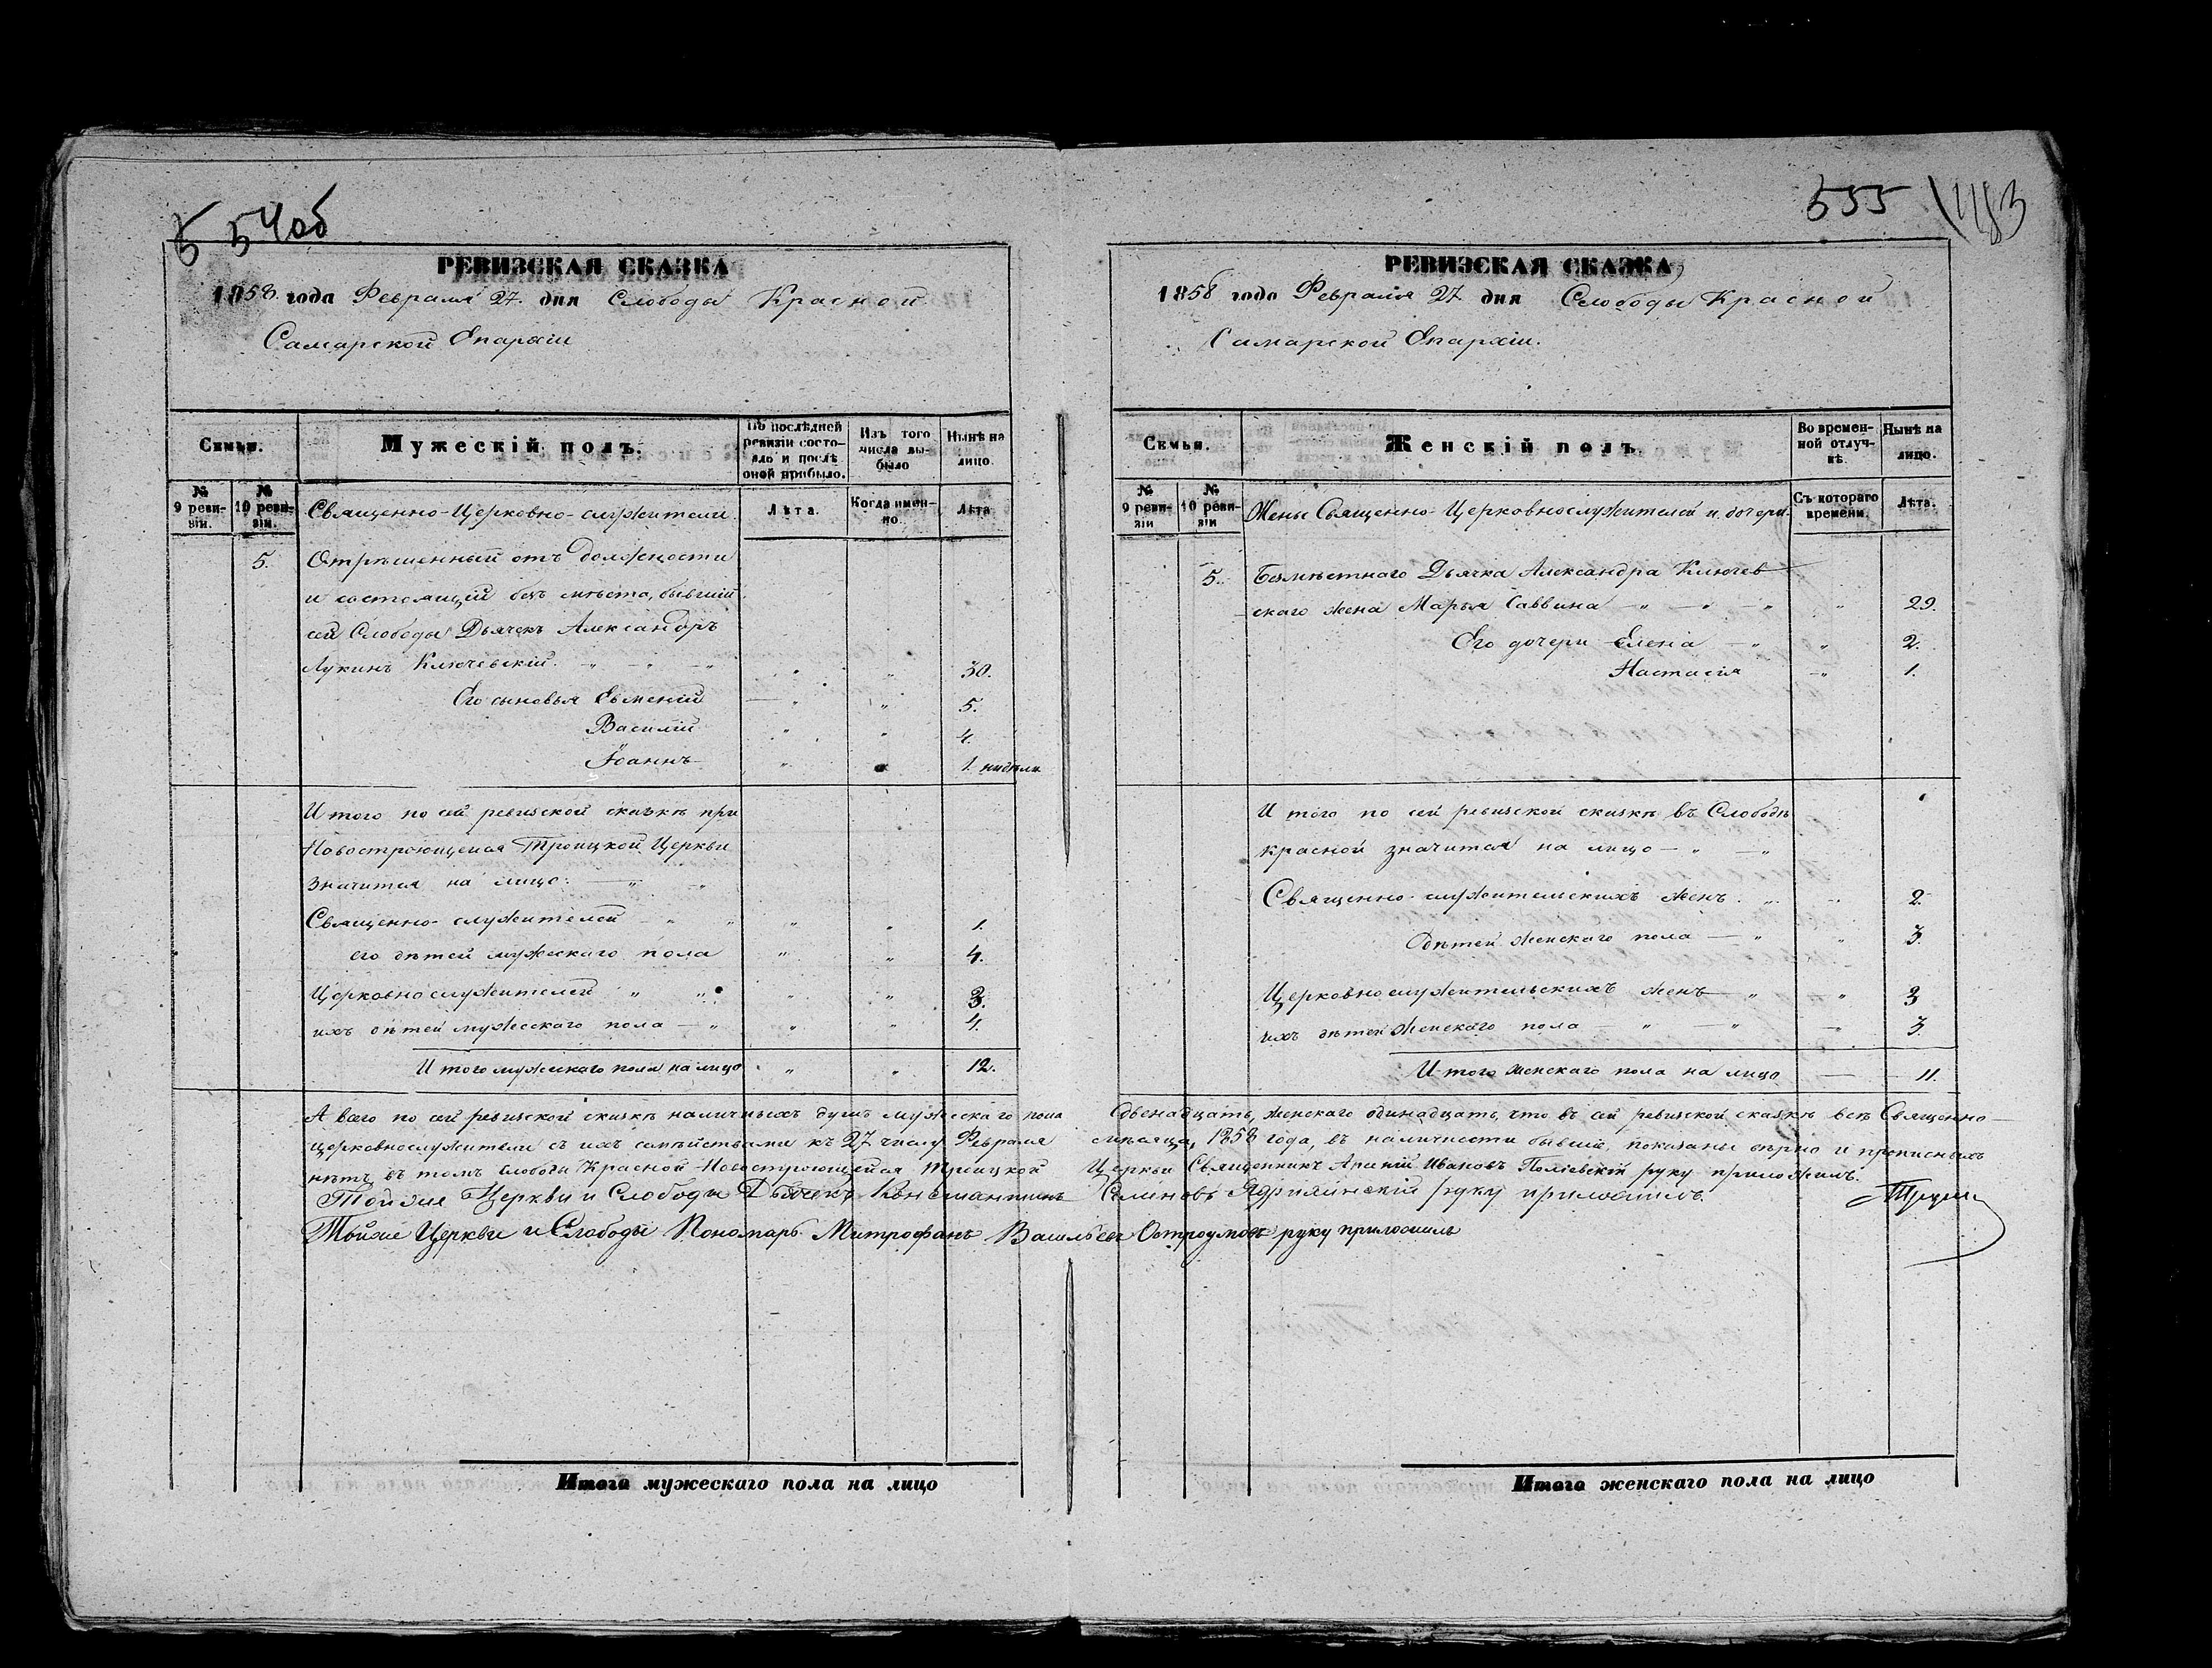 554об
РЕВИЗСКАЯ СКАЗКА
1858 года Февраля 27 дня Слободы Красной
Самарской Епархіи
Семьи.
Мужескій полъ.
По послѣдней ревизіи состояло и послѣ оной прибыло.
Изъ того числа выбыло
Нынѣ на лицо.
№ 9 ревизіи.
№ 10 ревизіи.
Священно-Церковно-служители.
Лѣта.
Когда именно.
Лѣта
5. Отрѣшенный отъ должности
и состоящій безъ мѣста, бывшій
сей Слободы Дьячекъ Александръ
Лукинъ Ключевскій. 30.
Его сыновья Евменій 5.
Василій 4.
Іоаннъ 1. недѣли
Итого по сей ревизской сказкѣ при
Новостроющейся Троицкой Церкви
значится на лицо:
Священно-служителей 1.
его дѣтей мужескаго пола 4.
Церковнослужителей 3.
ихъ дѣтей мужескаго пола 4.
Итого мужескаго пола на лицо 12.
555
1483
РЕВИЗСКАЯ СКАЗКА
1858 года Февраля 27 дня Слободы Красной
Самарской Епархіи.
Семьи.
Женскій полъ.
Во временной отлучкѣ.
Нынѣ на лицо.
№ 9 ревизіи
№ 10 ревизіи
Жены Священно-Церковнослужителей и дочери.
Съ котораго времени.
Лѣта.
5. Безмѣстнаго Дьячка Александра Ключев
скаго жена Марья Саввина 29.
Его дочери Елена 2.
Настасія 1.
Итого по сей ревизской сказкѣ въ Слободѣ
Красной значится на лицо
Священно-служительскихъ женъ 2.
дѣтей женскаго пола 3.
Церковнослужительскихъ женъ 3
ихъ дѣтей женскаго пола 3.
Итого женскаго пола на лицо 11.
А всего по сей ревизской сказкѣ наличныхъ душъ мужескаго пола двенадцать, женскаго одинадцать, что въ сей ревизской сказкѣ всѣ Священно-
церковнослужители съ ихъ семѣйствами къ 27 числу Февраля мѣсяца, 1858 года, въ наличности бывшіе, показаны вѣрно и прописныхъ
нѣтъ, въ томъ слободы Красной Новостроющейся Троицкой Церкви Священникъ Иванов руку приложилъ.
Той же Церкви и Слободы Дьячекъ Константинъ Семеновъ руку приложилъ.
Той же Церкви и Слободы Пономарь Митрофанъ Васильевъ Остроумовъ руку приложилъ
Итого мужескаго пола на лицо
Итого женскаго пола на лицо